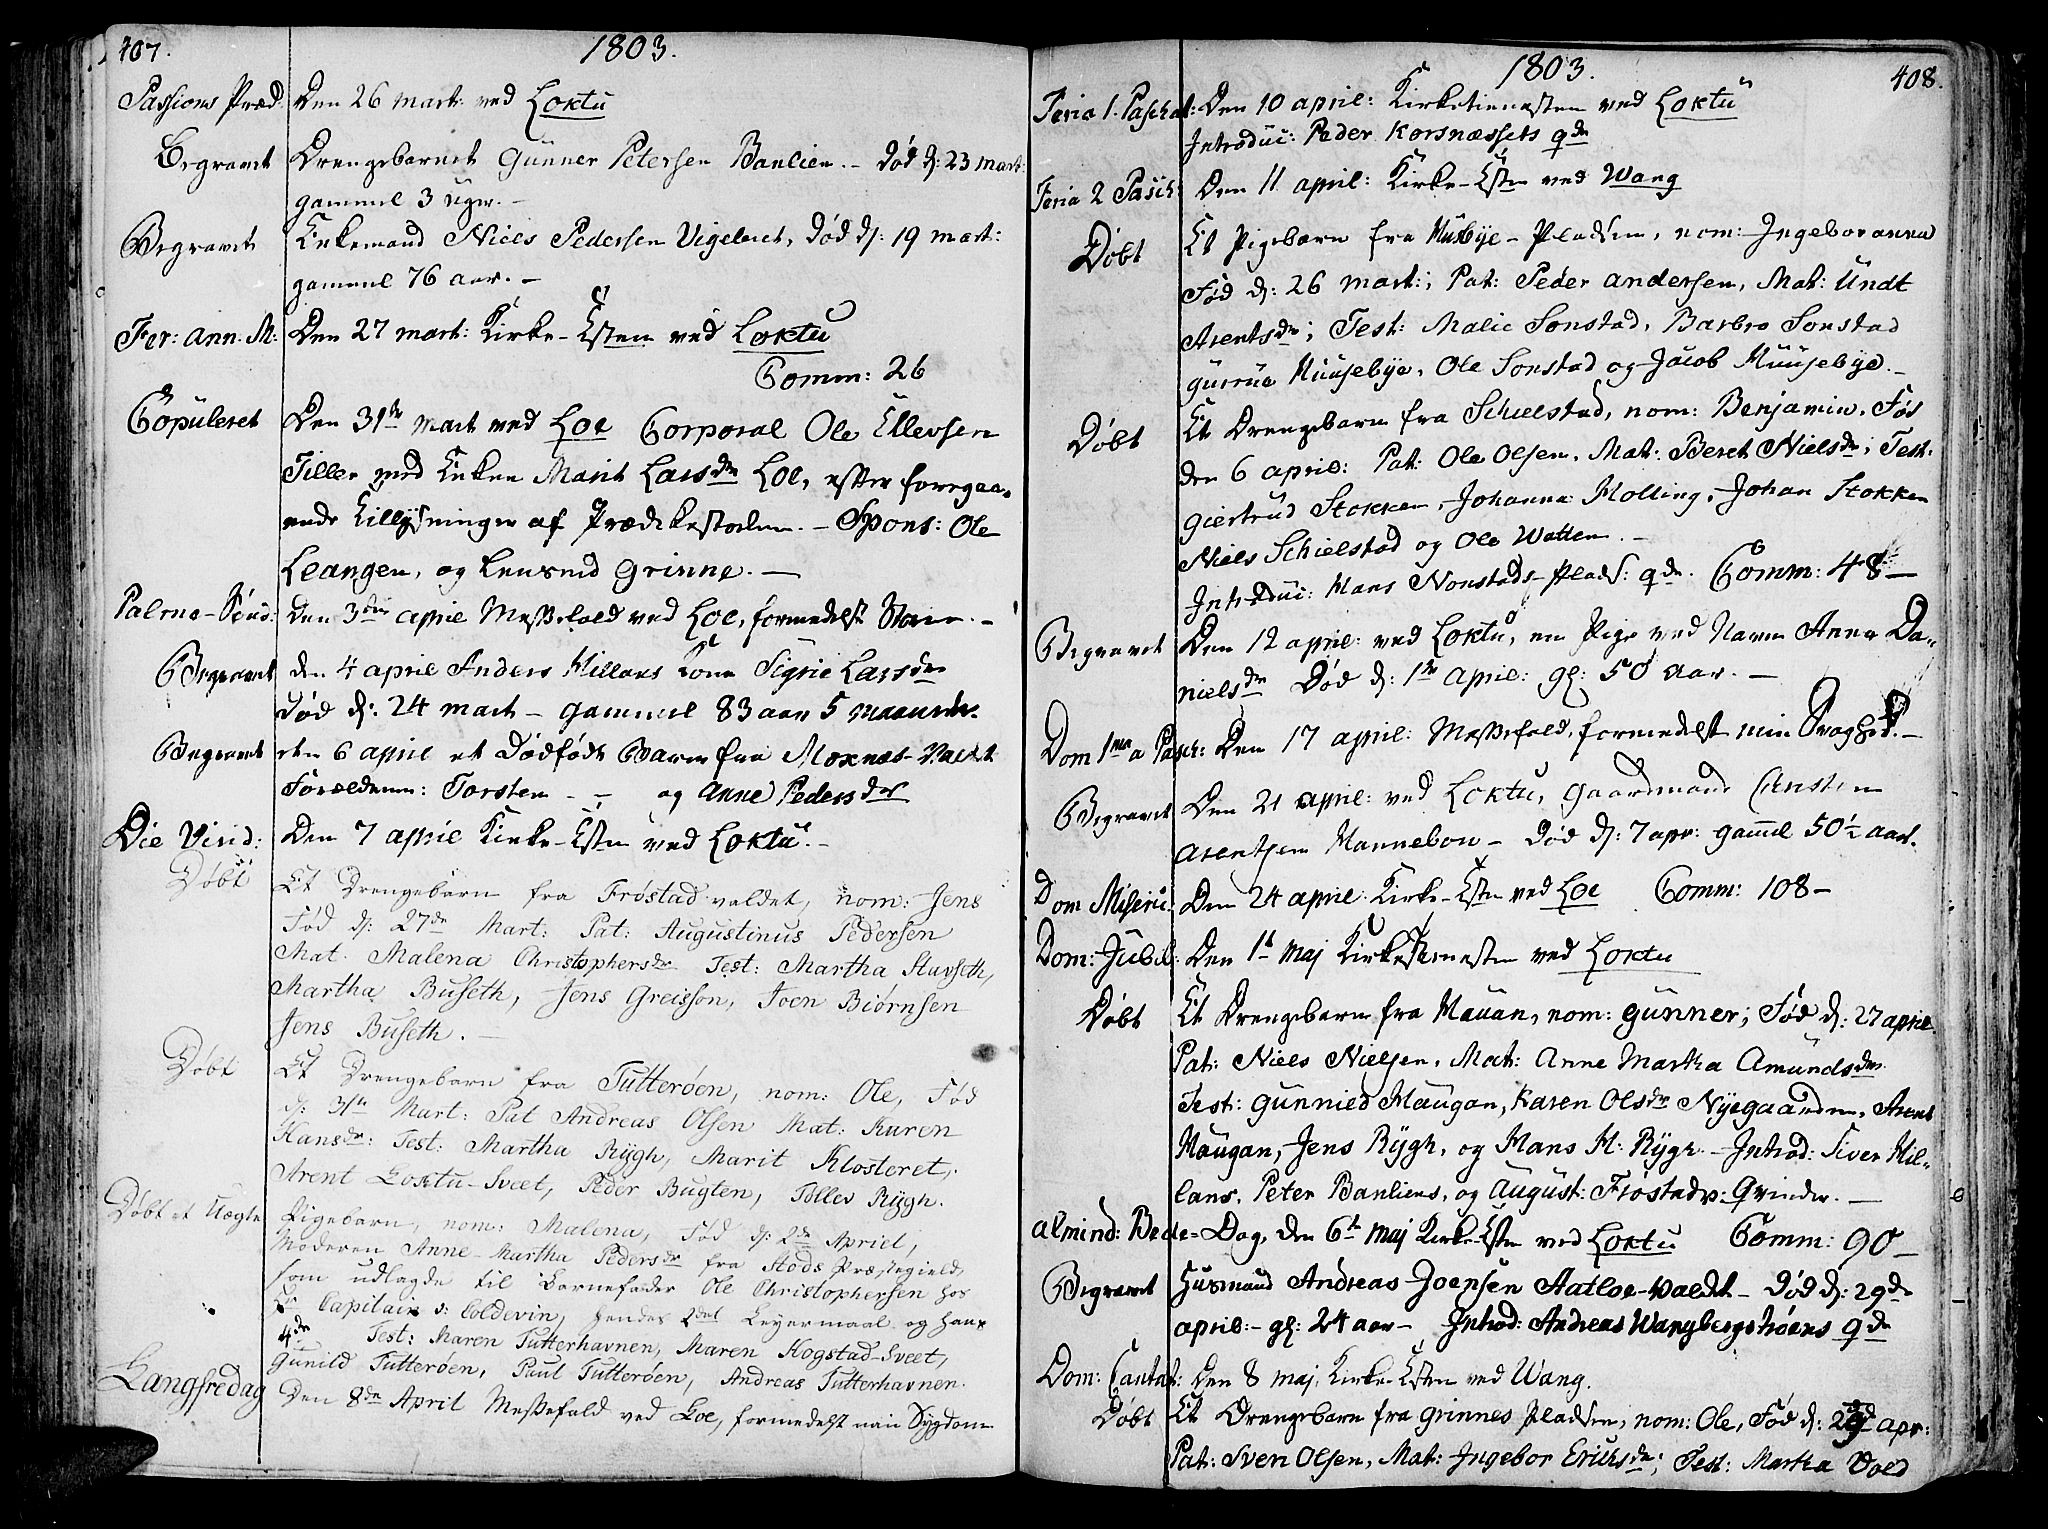 407.
1803.
Passions Præd. Den 26 mart: ved Loktu
Begravet Drengebarnet Gunner Petersen Banlien. – død d: 23 mart:
gammel 3 uger. –
Begravet Enkemand Niels Pedersen Vigebret, død d: 19 mart:
gammel 76 aar. –
Fer: Ann. M: Den 27 mart: Kirke-Tsten ved Loktu
Comm: 26
Copuleret Den 31te Mart ved Loe Corporal Ole Ellevsen
Tiller med Enken Marit Larsdr Loe, efter foregaa-
ende Tillysninger af Prædikestolen. – Spons: Ole
Leangen, og Grinne. –
Palme-Sønd: Den 3die april Messefald ved Loe, formedelst Storm. –
Begravet den 4 april Anders Hillans Kone Sigrie Larsdr
død d: 24 mart – gammel 83 aar 5 maaneder.
Begravet den 6 april et dødfødt Barn fra Moxnæs-Valdet
Forældrene: Torsten – – og Anne Pedersdr
Die Virid: Den 7 april Kirke-Tsten ved Loktu. –
Døbt Et Drengebarn fra Frøstad-valdet, nom: Jens
Fød d: 27de Mart: Pat: Augustinus Pedersen
Mat. Malena Christophersdr Test: Martha Stavseth,
Martha Buseth, Jens Greisson, Joen Biørnsen
Jens Buseth. –
Døbt Et Drengebarn fra Tutterøen, nom: Ole, Fød
d: 31te Mart: Pat Andreas Olsen Mat: Karen
Hansdr: Test: Martha Rygh, Marit Klosteret,
Arent Loktu-Sveet, Peder Bugten, Tølles Rygh.
Døbt et Uægte Pigebarn, nom: Malena, Fød d: 2de April,
Moderen Anne-Martha Pedersdr fra Stods Præstegield,
som udlagde til Barnefader Ole Christophersen hos
Hr Capitain v: Coldevin, hendes 2det Leyermaal og hans
4de Test: Maren Tutterhavnen, Maren Hogstad-Sveet,
Gunild Tutterøen, Paul Tutterøen, Andreas Tutterhavnen.
Langfredag Den 8de April Messefald ved Loe, formedelst min Sygdom
1803.
408.
Feria 1. Paschat: Den 10 april: Kirketienesten ved Loktu
Introduc: Peder Korsnæssets qde
Feria 2 Pasch: Den 11 april: Kirke-Tsten ved Wang
Døbt Et Pigebarn fra Husbye-Pladsen, nom: Ingeboranna
Fød d: 26 mart:, Pat: Peder Andersen, Mat: Undt
Arentsdr; Test: Malie Sonstad, Barbro Sonstad
Gurrue Muusebye, Ole Sonstad og Jacob Muusebye. –
Døbt Et Drengebarn fra Schielstad, nom: Benjamin, Fød
den 6 april: Pat: Ole Olsen, Mat: Beret Nielsdr; Test:
Giertrud Stokken, Johanna Holling, Johan Stokken
Niels Schielstad og Ole Watten. –
Introduc: Hans Nonstads-Plads: qde. Comm: 48 –
Begravet Den 12 april: ved Loktu, en Pige ved Navn Anne Da-
nielsdr Død d: 1te April: gl: 50 aar. –
Dom 1ma a Pasch: Den 17 april: Messefald, formedelst min Svaghed. –
Begravet Den 21 april: ved Loktu, Gaardmand
Arentsen Mannebon – Død d: 7 apr: gamel 50½ aar.
Dom Miseric: Den 24 april Kirke-Tsten ved Loe Comm: 108 –
Dom: Jubil: Den 1t Maj Kirketienesten ved Loktu
Døbt Et Drengebarn fra Hauan, nom: Gunner; Fød d: 27 april
Pat: Niels Nielsen, Mat: Anne Martha Amundsdr
Test: Gunnied Haugan, Karen Olsdr Nyegaarden, Arent
Haugan, Jens Rygh, og Hans H: Rygh. – Introd: Siver Hil-
lans, Peter Banliens, og August: Frøstadv: Qvinder. –
Almind: Bede-Dag, den 6t Maj Kirke-Tsten ved Loktu Comm: 90 –
Begravet Husmand Andreas Joensen Aatloe-valdet – Død d: 29de
april: – gl: 24 aar – Introd: Andreas Wangbergshøens qde
Dom: Cantat: Den 8 maj, Kirke-Tsten ved Wang.
Døbt Et Drengebarn fra Grinnes pladsen, nom: Ole, Fød d: apr:
Pat: Sven Olsen, Mat: Ingebor Erichsdr; Test: Martha Vold